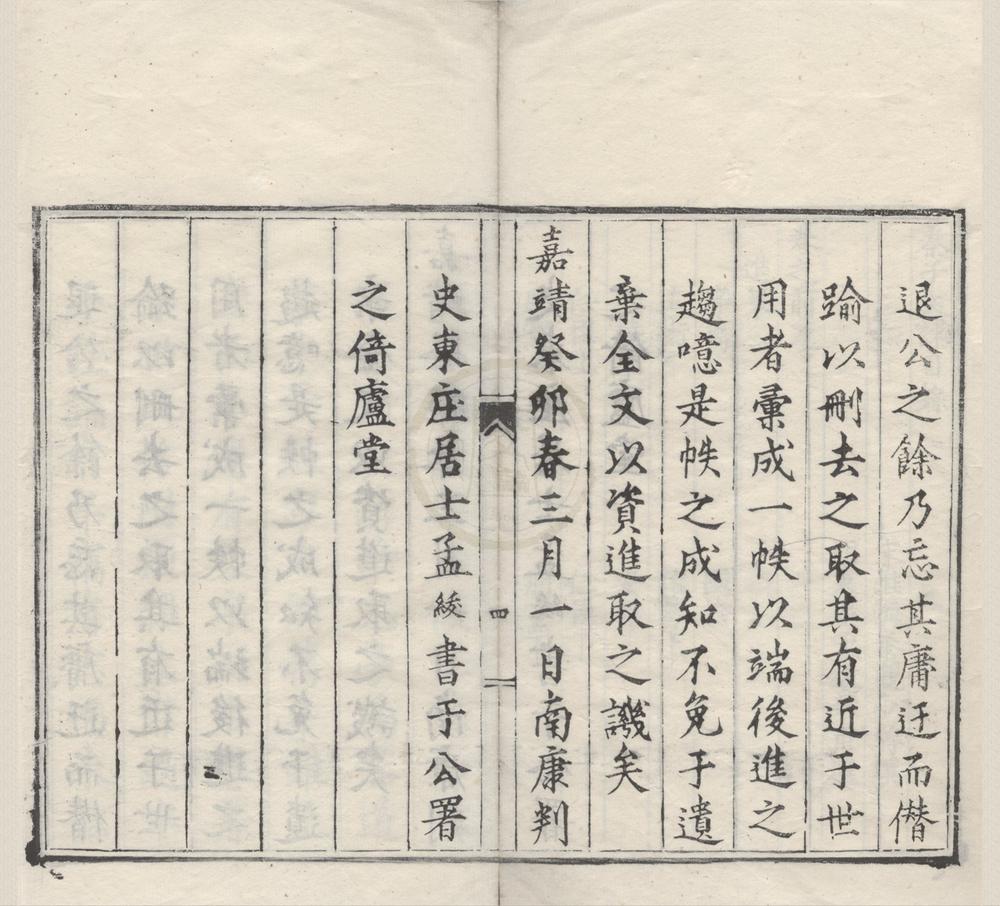 退公之餘乃忘其庸迂而僭
踰以刪去之取其有近于世
用者彙成一帙以端後進之
趨噫是帙之成知不免于遺
棄全文以資進取之譏矣
嘉靖癸卯春三月一日南康判
四
史東庄居士孟綾書于公署
之倚廬堂